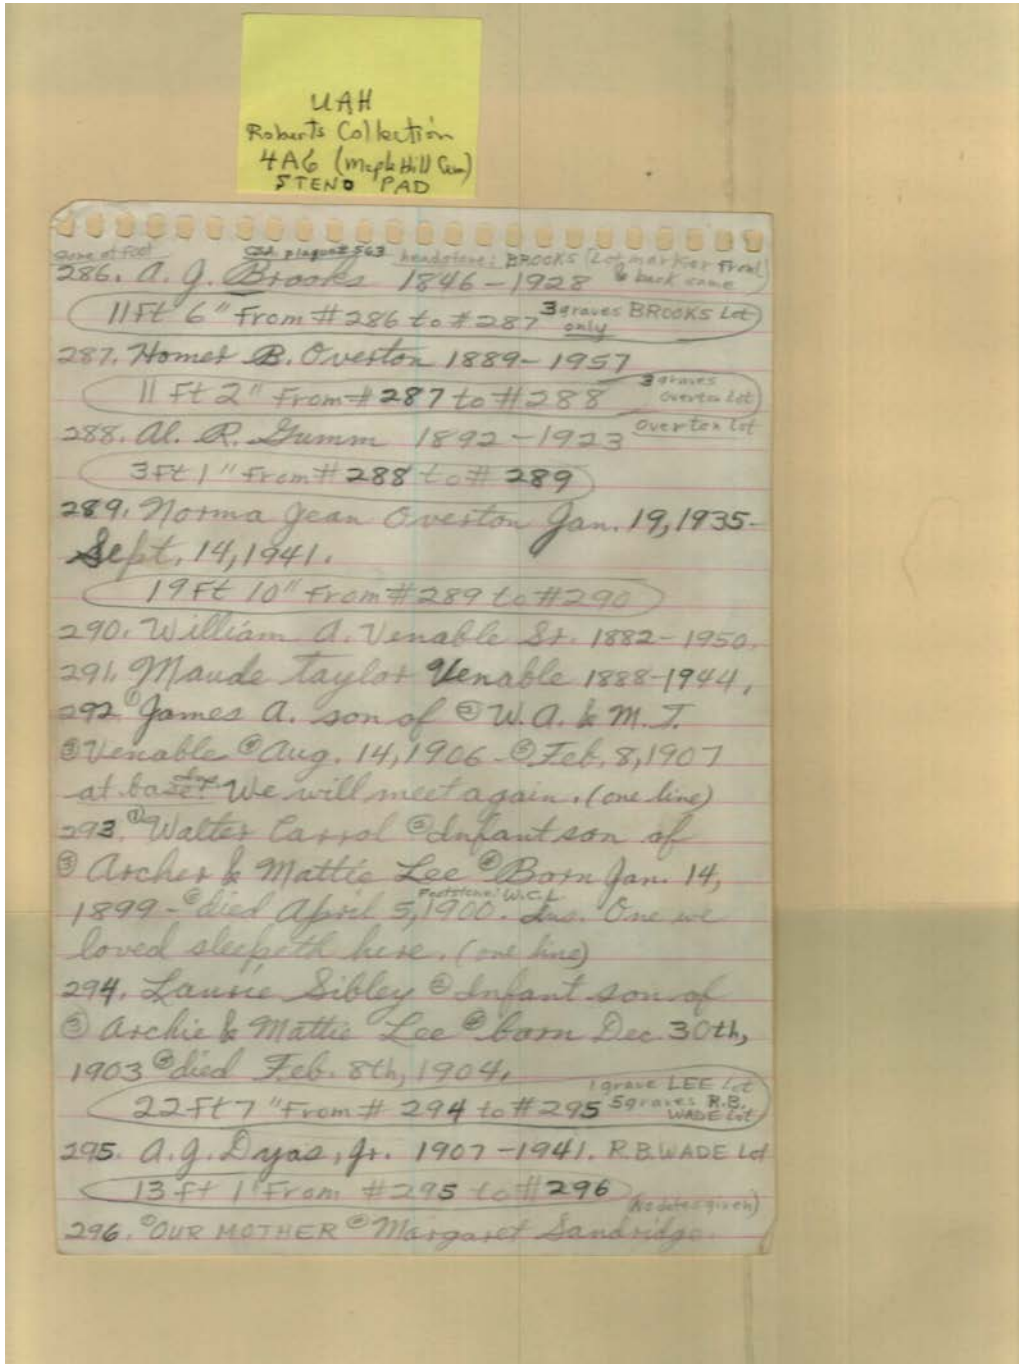 UAH
Roberts Collection
4A6 (Maple Hill Cem)
STENO PAD
same at foot CSA plaque # 563 headstone: BROOKS (Lot marker front
286. A. J. Brooks 1846 - 1928 & back same)
11 Ft 6" From # 286 to # 287 3 graves BROOKS Lot
only
287. Homer B. Overton 1889 - 1957
11 Ft 2" From # 287 to # 288 3 graves
Overton Lot
288. Al. R. Gumm 1892 - 1923 Overton Lot
3 Ft 1" From # 288 to # 289
289. Norma Jean Overton Jan. 19, 1935 -
Sept. 14, 1941.
19 Ft 10" From # 289 to # 290
290. William A. Venable Sr. 1882 - 1950.
291. Maude Taylor Venable 1888 - 1944.
292 ① James A. son of ② W. A. & M. T.
③ Venable ④ Aug. 14, 1906 - ⑤ Feb. 8, 1907
at base: We will meet again. (one line)
293. ① Walter Carrol ② Infant son of
③ Archer & Mattie Lee ④ Born Jan. 14,
Footstone: W.C.L.
1899 - ⑤ died April 5, 1900. Ins. One we
loved sleepeth here. (one line)
294. Laurie Sibley ② Infant son of
③ Archie & Mattie Lee ④ born Dec. 30th,
1903 ⑤ died Feb. 8th, 1904.
1 grave LEE Lot
22 Ft 7" From # 294 to # 295 5 graves R.B.
WADE Lot
295. A. J. Dyas, Jr. 1907 - 1941. R.B. WADE Lot
13 ft 1" From # 295 to # 296
(No dates given)
296. ① OUR MOTHER ② Margaret Sandridge.